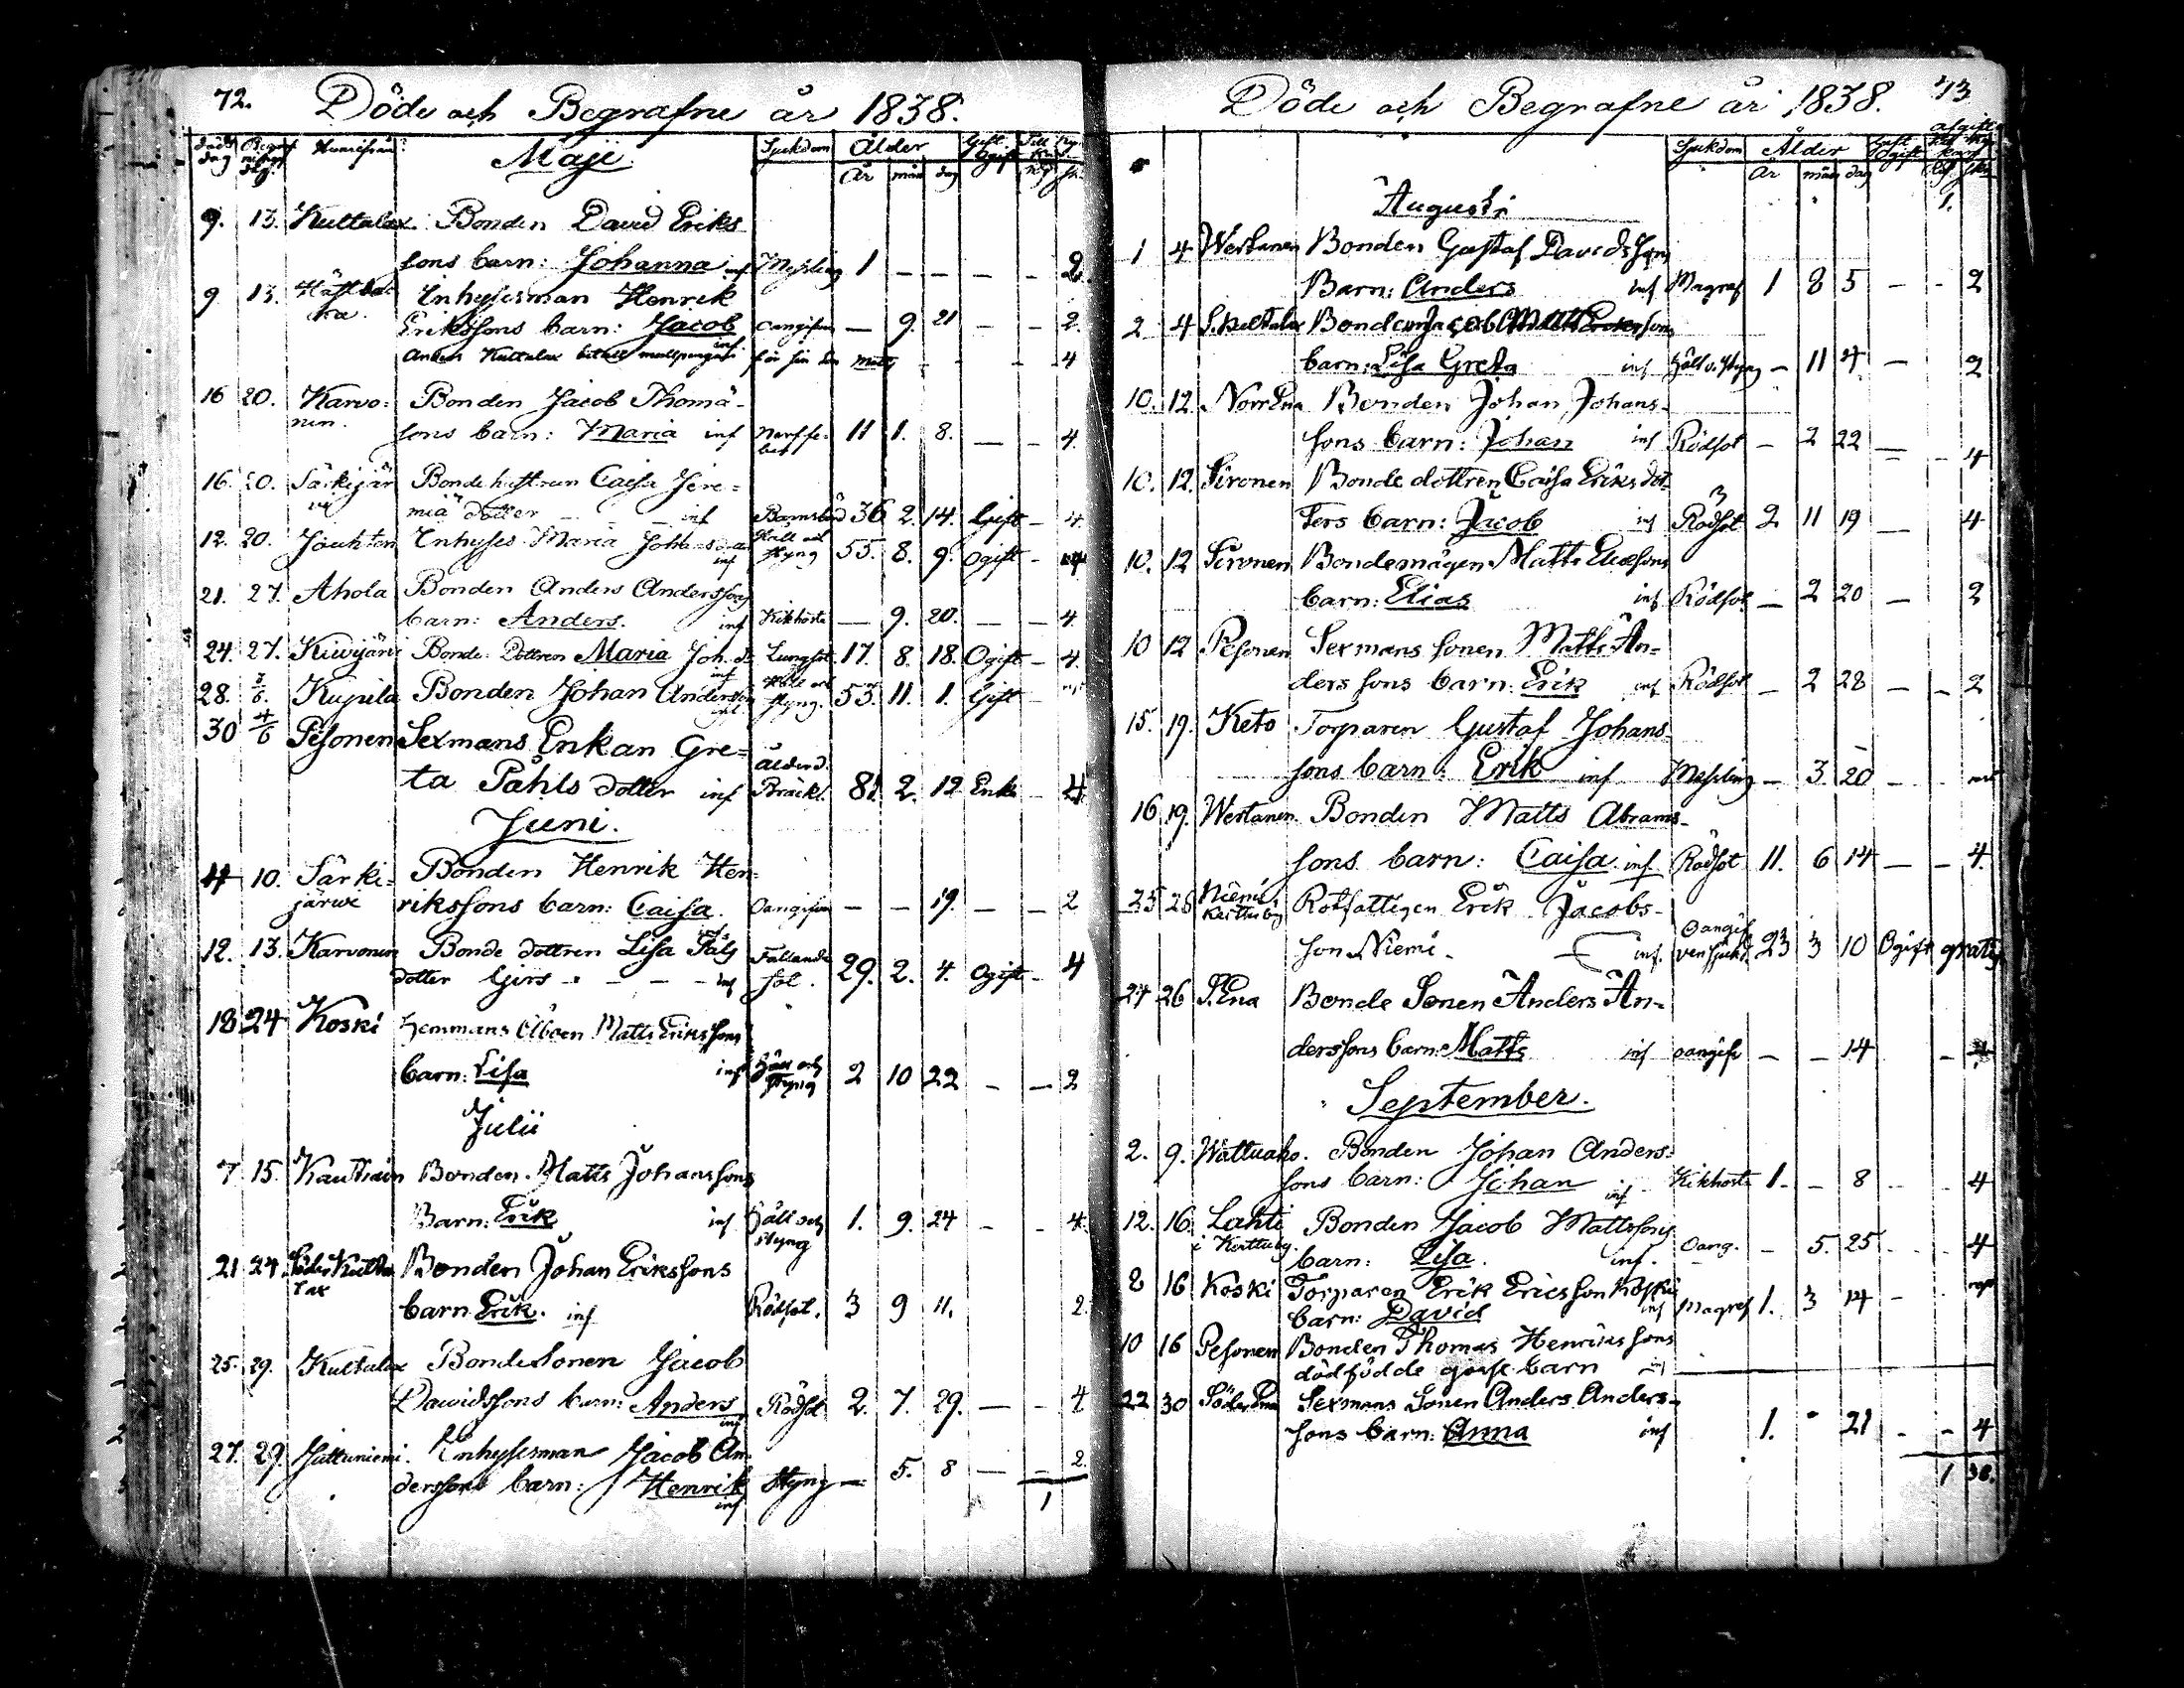 72. Döde och Begrafne år 1838.
Maji.
Sjukdom Ålder Gift Ogift
år mån dag
9. 13. Kuttalax. Bonden David Eriks
sons barn: Johanna inf Messling 1 – – – – 2
9 13. Inhysesman Henrik
Erikssons barn: Jacob oangifven – 9. 21 – – 2.
inf
Anders Kuttalax betalt mullpengar för sin Son Matts – – – – 4
16 20. Karvo- Bonden Jacob Thomä-
nen. sons barn: Maria inf Nerffe-ber 11 1. 8. – – 4.
16. 20. Särkijär Bondehustrun Caisa Jere-
vi miä dotter – – inf Barnsbörd 36 2. 14. Gift – 4.
12. 20. Jouhten Inhyses Maria Johansd.
inf Håll och styng 55. 8. 9. Ogift – 4
21. 27. Ahola Bonden Anders Anderssons
barn: Anders. inf Kikhosta – 9. 20. – – 4.
24. 27. Kivijärvi Bonde Dottren Maria Joh. d. Lungsot 17. 8. 18. Ogift – 4.
inf
28. Kujala Bonden Johan Andersson
inf Håll och styng. 53. 11. 1. Gift –
30 4/6 Pesonen Sexmans Enkan Gre-
ta Påhls dotter inf Ålderd. Bräckl. 81. 2. 12 Enka – 4.
Juni.
4 10. Särki- Bonden Henrik Hen-
järvi rikssons barn: Caisa. Oangifven – – 19. – – 2
inf
12. 13. Karvonen Bonde dottren Lisa Påls
dotter Girs – – – – inf Fallande sot. 29. 2. 4. Ogift – 4
18 24 Koski Hemmans Åboen Matts Erikssons
barn: Lisa inf Håll och styng 2 10 22 – – 2
Julii
7 15. Kautiain Bonden Matts Johanssons
Barn: Erik inf Håll och styng 1. 9. 24 – – 4.
21 24 Söder Kutta Bonden Johan Erikssons
lax barn Erik. inf Rödsot. 3 9 11. 2.
25. 29. Kuttalax Bondesonen Jacob
Davidssons barn: Anders Rödsot 2. 7. 29. – – 4
inf
27. 29. Juttuniemi. Inhysesman Jacob An-
derssons barn: Henrik Styng – 5. 8 – – 2.
inf
1
Döde och Begrafne år 1838. 73
Sjukdom Ålder Gift Ogift
år mån dag
1.
Augusti
1 4 Wertanen Bonden Gustaf Davidssons
Barn: Anders inf Magref 1 8 5 – – 2
2. 4 S. Kuttalax Bonden Jacob Matts Erikssons
barn: Lisa Greta inf Håll o. styng – 11 4 – 2
10. 12. Norr Ena Bonden Johan Johans-
sons barn: Johan inf Rödsot – 2 22 – – 4
10. 12. Sironen Bonde dottren Caisa Eriks dot
ters barn: Jacob inf Rödsot 2 11 19 – 4
10. 12 Sironen Bondemågen Matts Eliassons
barn: Elias inf Rödsot – 2 20 – 2
10 12 Pesonen Sexmans sonen Matts An-
ders sons barn: Erik inf Rödsot – 2 28 – – 2
15. 19. Keto Torparen Gustaf Johans-
sons barn: Erik inf Messling – 3. 20 – –
16 19. Wertanen. Bonden Matts Abrams-
sons barn: Caisa inf Rödsot 11. 6 14 – – 4.
23 26 Niemi, Kerttuby Rotfattigen Erik Jacobs-
son Niemi. – inf. Oangif ven sjukd. 23 3 10 Ogift gratis
24 26 S. Ena Bonde Sonen Anders An-
derssons barn: Matts inf oangifv – – 14 –
September.
2. 9. Wattuaho. Bonden Johan Anders-
sons barn: Johan inf Kikhosta 1. – 8 4
12. 16. Lahti Bonden Jacob Mattssons
i Kerttuby. barn: Lisa. inf. Oang. – 5. 25 4
8 16 Koski Torparen Erik Ericsson Koski
barn: David inf Magref 1. 3 14 –
10 16 Pesonen Bonden Thomas Henrikssons
dödfödde gosse barn
22 30 Söder Ena Sexmans Sonen Anders Anders-
sons barn: Anna inf 1. 21 – – 4
1 38.